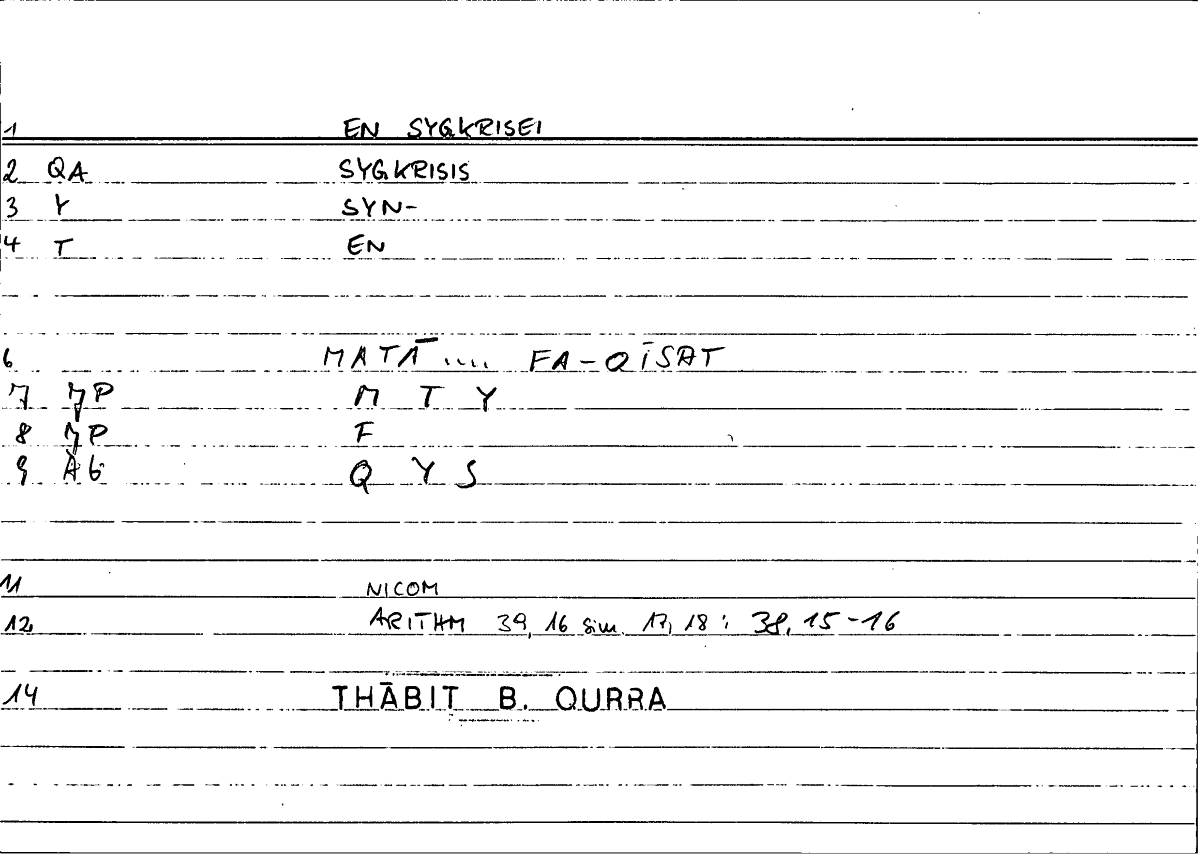 1 EN SYGKRISEI
2 QA SYGKRISIS
3 Y SYN-
4 T EN
6 MATĀ.... FA-QĪSAT
7 P M T Y
8 P F
9 Q Y S
11 NICOM
12 ARITHM 39, 16 sim. 17, 18 : 38, 15-16
14 THĀBIT B. QURRA